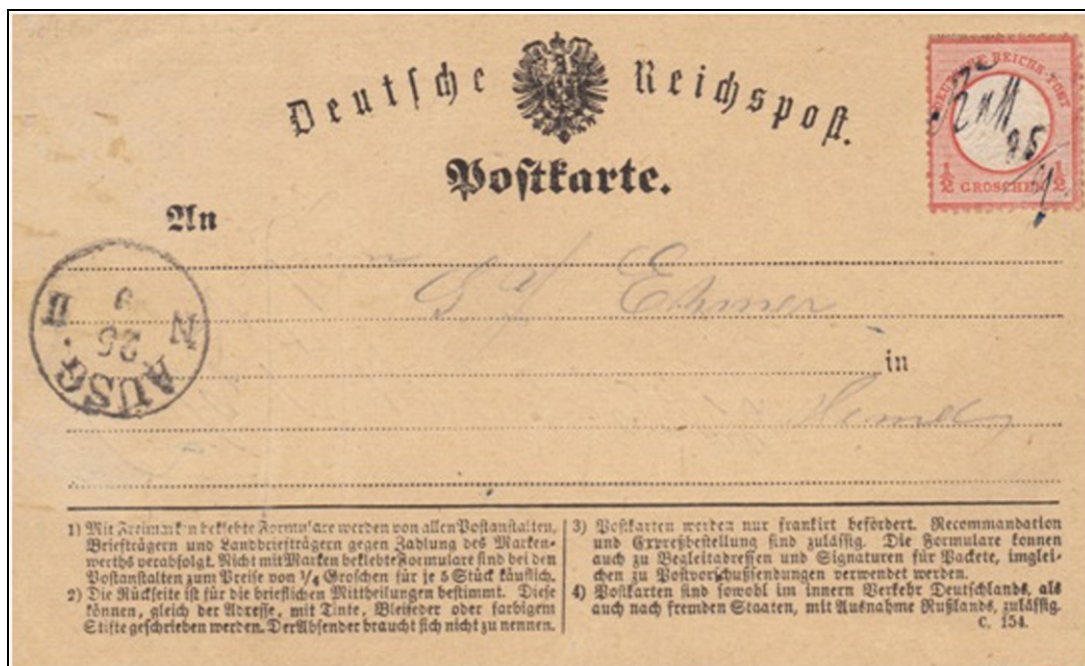 Deutsche Reichspost.
DEUTSCHE REICHS-POST
½ GROSCHEN ½
Postkarte.
An
in
AUSG. N
26
9
II
1) Mit Freimarken beklebte Formulare werden von allen Postanstalten,
Briefträgern und Landbriefträgern gegen Zahlung des Marken-
werths verabfolgt. Nicht mit Marken beklebte Formulare sind bei den
Postanstalten zum Preise von ¼ Groschen für je 5 Stück käuflich.
2) Die Rückseite ist für die brieflichen Mittheilungen bestimmt. Diese
können, gleich der Adresse, mit Tinte, Bleifeder oder farbigem
Stifte geschrieben werden. Der Absender braucht sich nicht zu nennen.
3) Postkarten werden nur frankirt befördert. Recommandation
und Expreßbestellung sind zulässig. Die Formulare können
auch zu Begleitadressen und Signaturen für Packete, imglei-
chen zu Postvorschußsendungen verwendet werden.
4) Postkarten sind sowohl im innern Verkehr Deutschlands, als
auch nach fremden Staaten, mit Ausnahme Rußlands, zulässig.
C. 154.